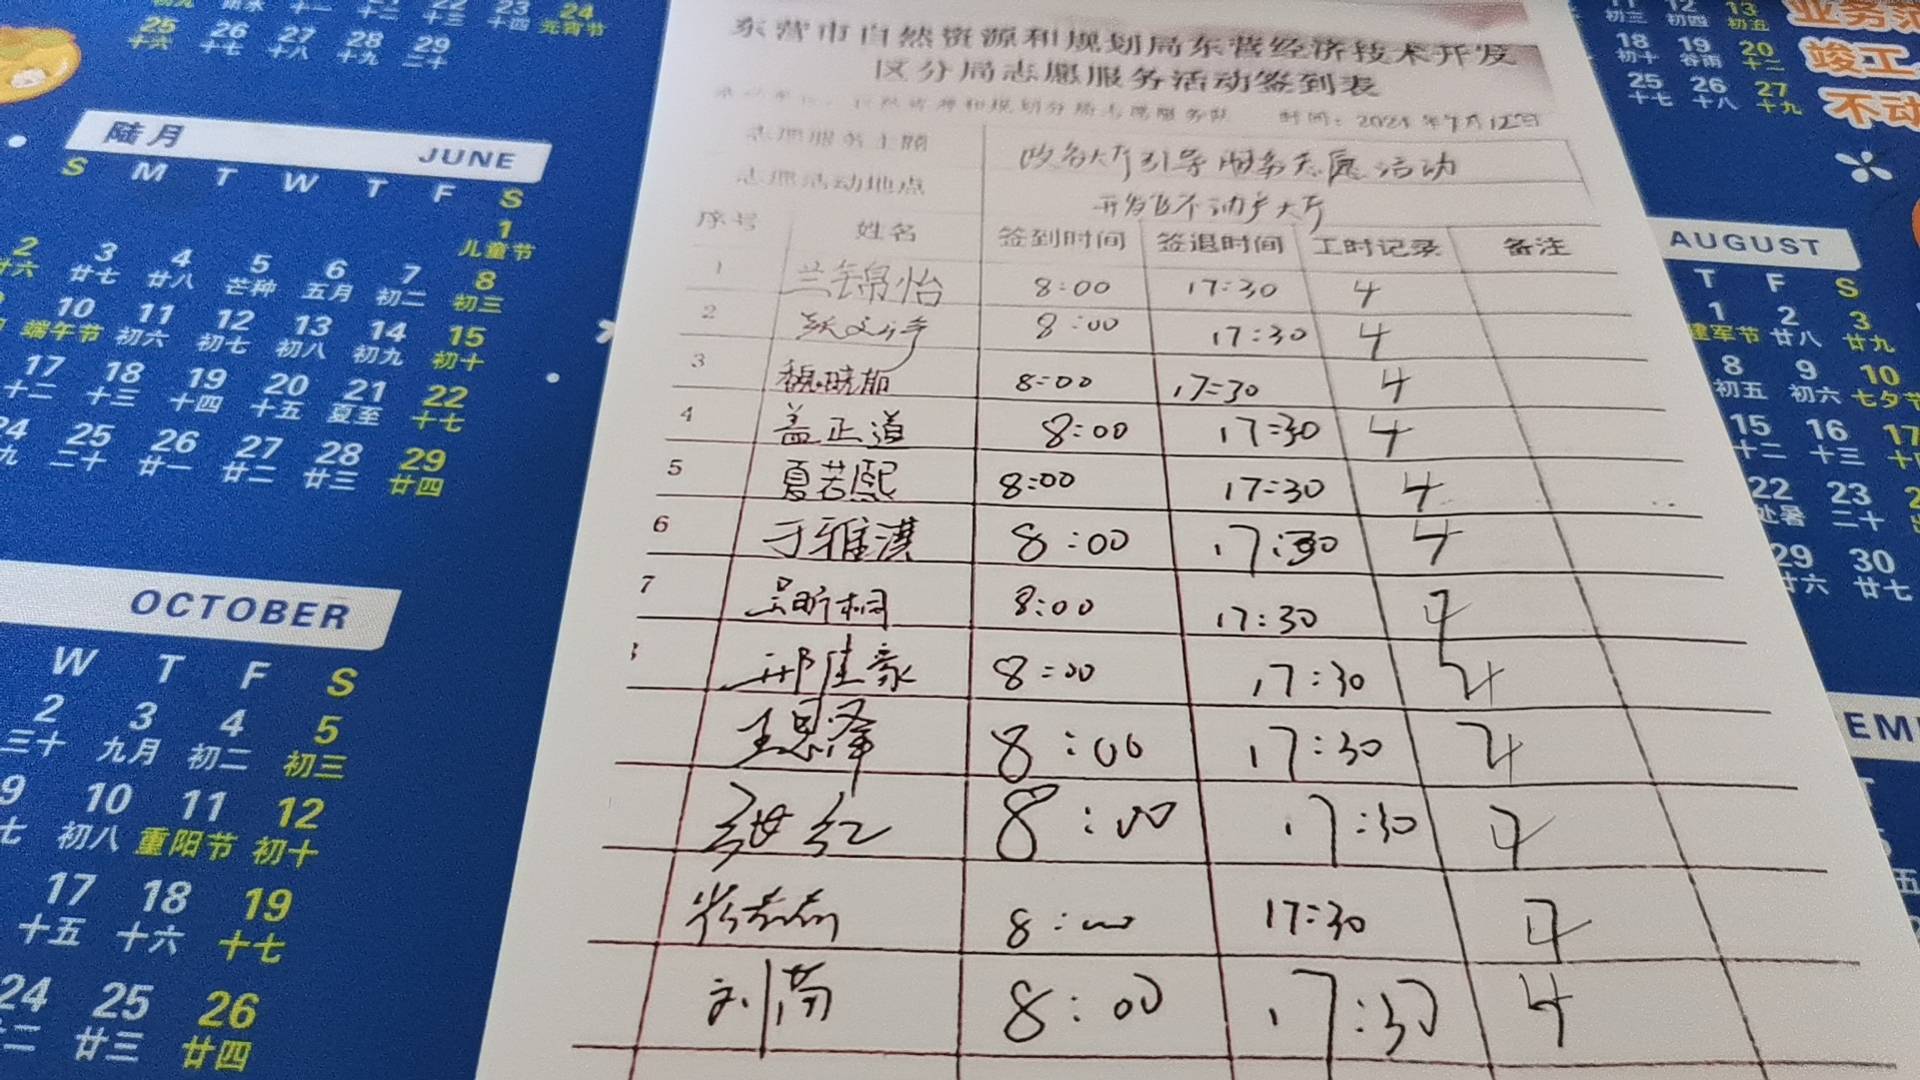 22 23 24
十二 十三 十四 元宵节
25 26 27 28 29
十六 十七 十八 十九 二十
陆月 JUNE
S M T W T F S
1
儿童节
2 3 4 5 6 7 8
廿六 廿七 廿八 芒种 五月 初二 初三
10 11 12 13 14 15
端午节 初六 初七 初八 初九 初十
17 18 19 20 21 22
十二 十三 十四 十五 夏至 十七
24 25 26 27 28 29
二十 廿一 廿二 廿三 廿四
OCTOBER
W T F S
2 3 4 5
三十 九月 初二 初三
9 10 11 12
初八 重阳节 初十
17 18 19
十五 十六 十七
24 25 26
廿三 廿四
东营市自然资源和规划局东营经济技术开发
区分局志愿服务活动签到表
志愿服务主题 政务大厅引导服务志愿活动
志愿活动地点 开发区不动产大厅
序号 姓名 签到时间 签退时间 工时记录 备注
1 兰锦怡 8:00 17:30 4
2 8:00 17:30 4
3 魏晓茹 8:00 17:30 4
4 盖正道 8:00 17:30 4
5 夏若熙 8:00 17:30 4
6 于雅淇 8:00 17:30 4
7 吴昕桐 8:00 17:30 4
邢佳豪 8:00 17:30 4
王思泽 8:00 17:30 4
8:00 17:30 4
8:00 17:30 4
刘 8:00 17:30 4
11 12 13
初三 初四 初五
18 19 20
初十 谷雨 十二
25 26 27
十七 十八 十九
业务范
竣工
不动
AUGUST
T F S
1 2 3
建军节 廿八 廿九
8 9 10
初五 初六 七夕节
15 16 17
十二 十三
22 23
处暑 二十
29 30
廿六 廿七
EM